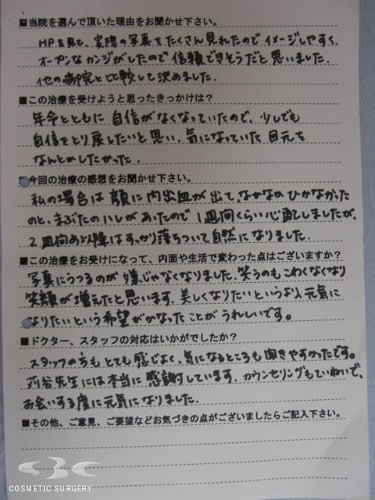 ■当院を選んで頂いた理由をお聞かせ下さい。
HPを見て、実際の写真をたくさん見れたのでイメージしやすく、
オープンなカンジがしたので信頼できそうだと思いました。
他の病院と比較して決めました。
■この治療を受けようと思ったきっかけは?
年令とともに自信がなくなっていたので、少しでも
自信をとり戻したいと思い、気になっていた目元を
なんとかしたかった。
■今回の治療の感想をお聞かせ下さい。
私の場合は顔に内出血が出て、なかなかひかなかった
のと、まぶたのハレがあったので1週間くらい心配しましたが、
2週間め以降はすっかり落ちついて自然になりました。
■この治療をお受けになって、内面や生活で変わった点はございますか?
写真にうつるのが嫌じゃなくなりました。笑うのもこわくなくなり
笑顔が増えたと思います。美しくなりたいというより、元気に
なりたいという希望がかなったことがうれしいです。
■ドクター、スタッフの対応はいかがでしたか?
スタッフの方もとても感じよく、気になるところも聞きやすかったです。
苅谷先生には本当に感謝しています。カウンセリングもていねいで、
お会いする度に元気になりました。
■その他、ご意見、ご要望などお気づきの点がございましたらご記入下さい。
COSMETIC SURGERY